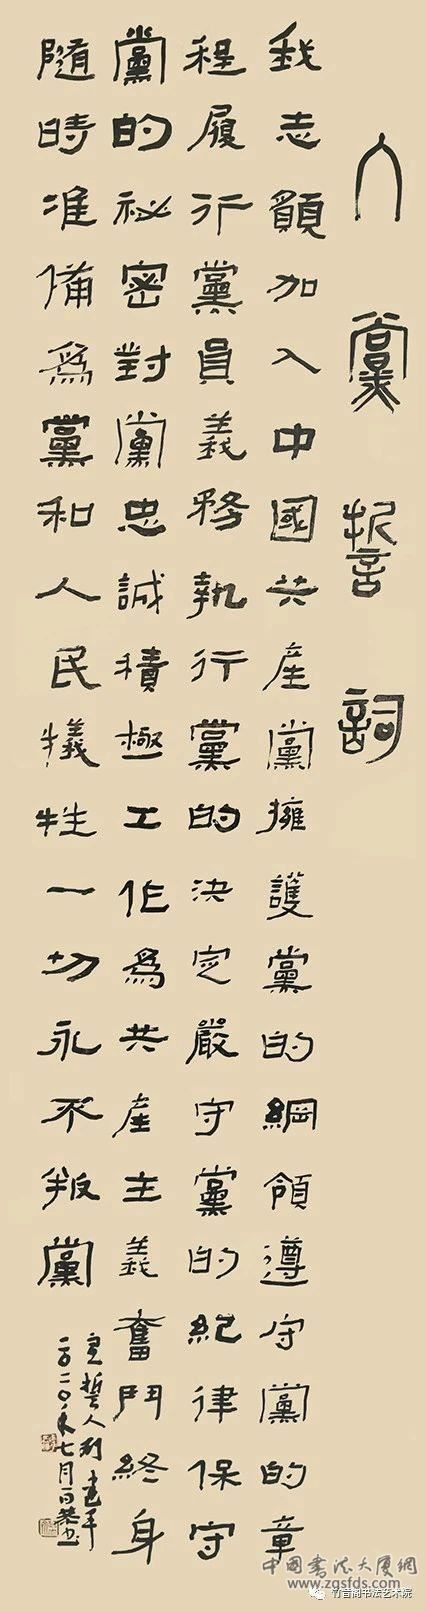 入黨誓詞
我志願加入中國共產黨擁護黨的綱領遵守黨的章
程履行黨員義務執行黨的決定嚴守黨的紀律保守
黨的祕密對黨忠誠積極工作爲共產主義奮鬥終身
隨時准備爲黨和人民犧牲一切永不叛黨
宣誓人
七月
中國書法大厦網
www.zgsfds.com
竹音阁书法艺术院